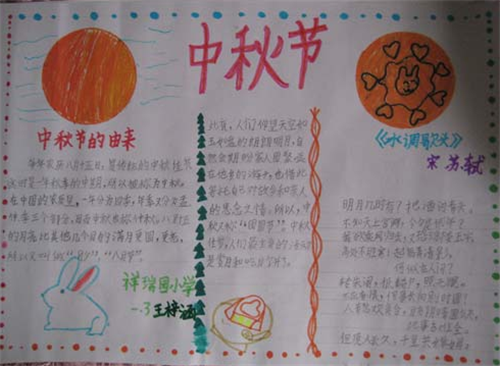 中秋节
中秋节的由来
每年农历八月十五日，是传统的中秋佳节
这时是一年秋季的中期，所以被称为中秋。
在中国的农历里，一年分为四季，每季又分为孟
仲、季三个部分，因而中秋也称仲秋。八月十五
的月亮比其他几个月的满月更圆，更亮，
所以又叫做“月夕”，“八月节”。
祥瑞园小学
一.3 王梓涵
此夜，人们仰望天空如
玉如盘的朗朗明月，自
然会期盼家人团聚。远
在他乡的游子，也借此
寄托自己对故乡和亲人
的思念之情。所以，中秋
又称“团圆节”。中秋
佳节，人们最主要的活动
是赏月和吃月饼了。
《水调歌头》
宋 苏轼
明月几时有？把酒问青天。
不知天上宫阙，今夕是何年？
何似在人间？
转朱阁，低绮户，照无眠。
不应有恨，何事长向别时圆？
人有悲欢离合，月有阴晴圆缺，
此事古难全。
但愿人长久，千里共婵娟。